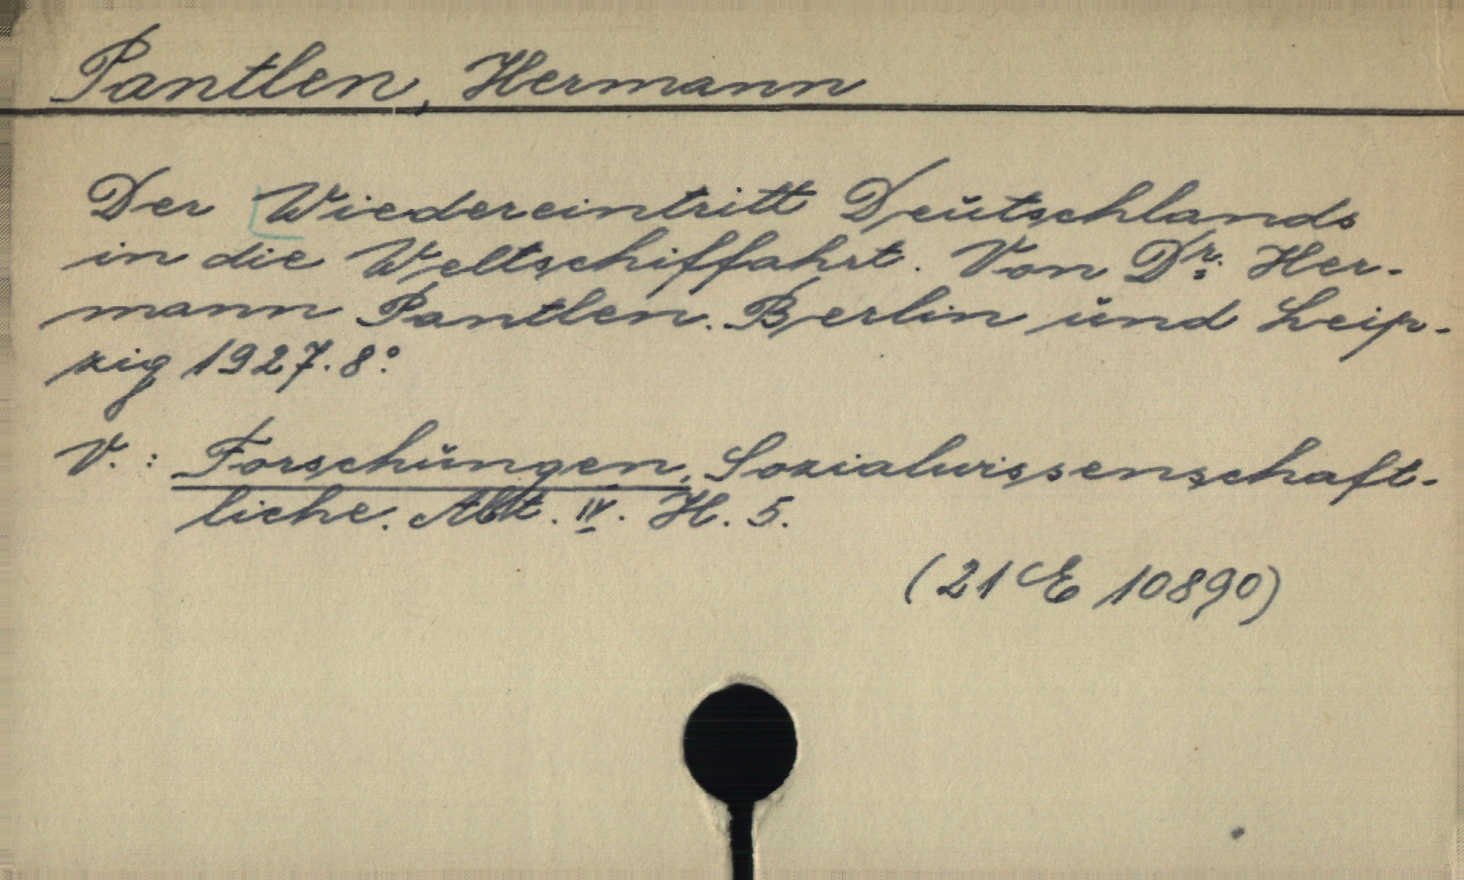 Pantlen, Hermann
Der Wiedereintritt Deutschlands
in die Weltschiffahrt. Von Dr. Her-
mann Pantlen. Berlin und Leip-
zig 1927. 8°
V.: Forschungen, Sozialwissenschaft-
liche. Abt. IV. H. 5.
(21 E 10890)